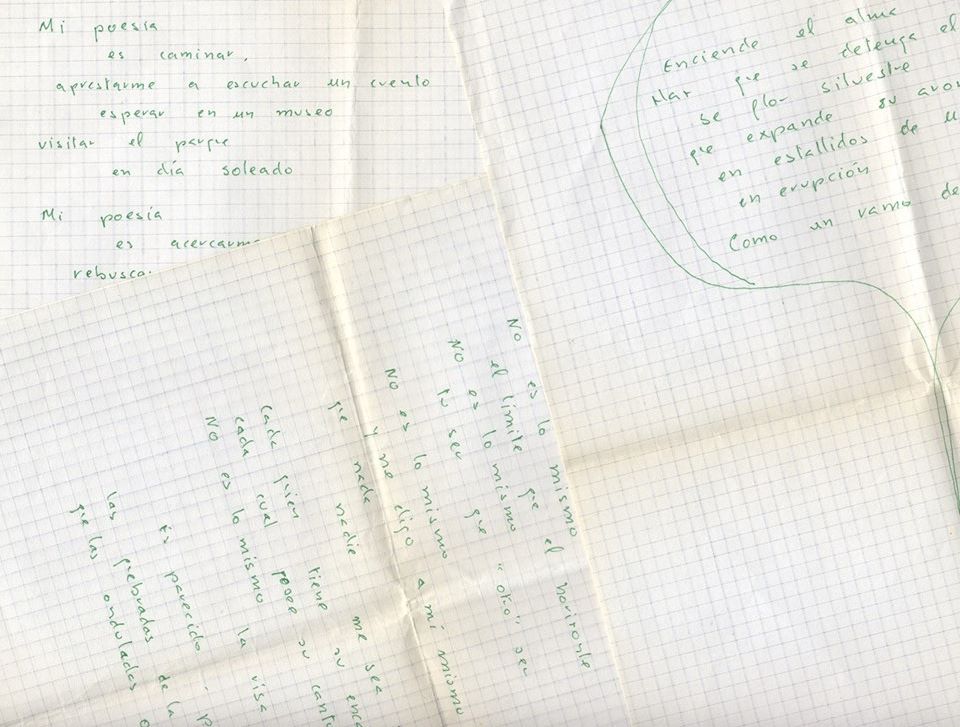 Mi poesía
es caminar,
aprestarme a escuchar un cuento
esperar en un museo
visitar el parque
en día soleado
Mi poesía
es acercarme
rebusca
Enciende el alma
que se detenga el
se flo- silvestre
que expande su
en estallidos de
en erupción
Como un ramo de
No es lo mismo
el límite que el horizonte
No es lo mismo "otro" ser
tu ser que
No es lo mismo
y me digo a mí mismo
que nada nadie me sea
cada quien tiene su
cada cual posee su
No es lo mismo la risa
Es parecido
las quebradas de la
que las onduladas